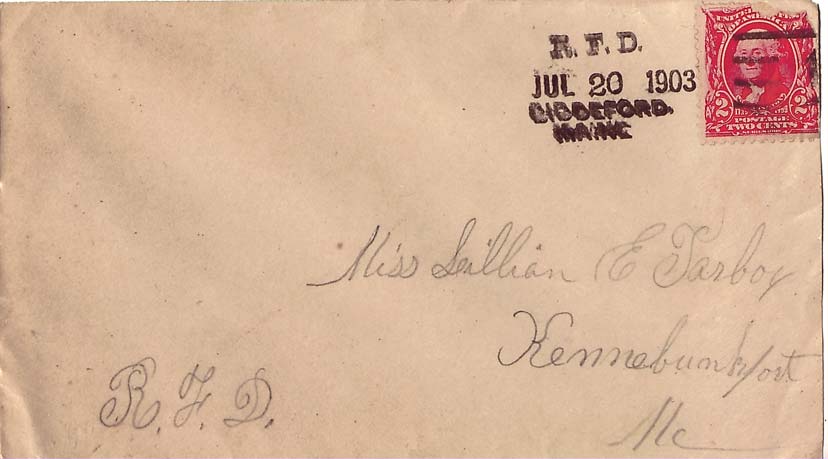 R. F. D.
JUL 20 1903
BIDDEFORD.
MAINE
UNITED STATES OF AMERICA
2 2
POSTAGE
TWO CENTS
Miss Lillian E Tarbox
Kennebunkport
Me
R. F. D.